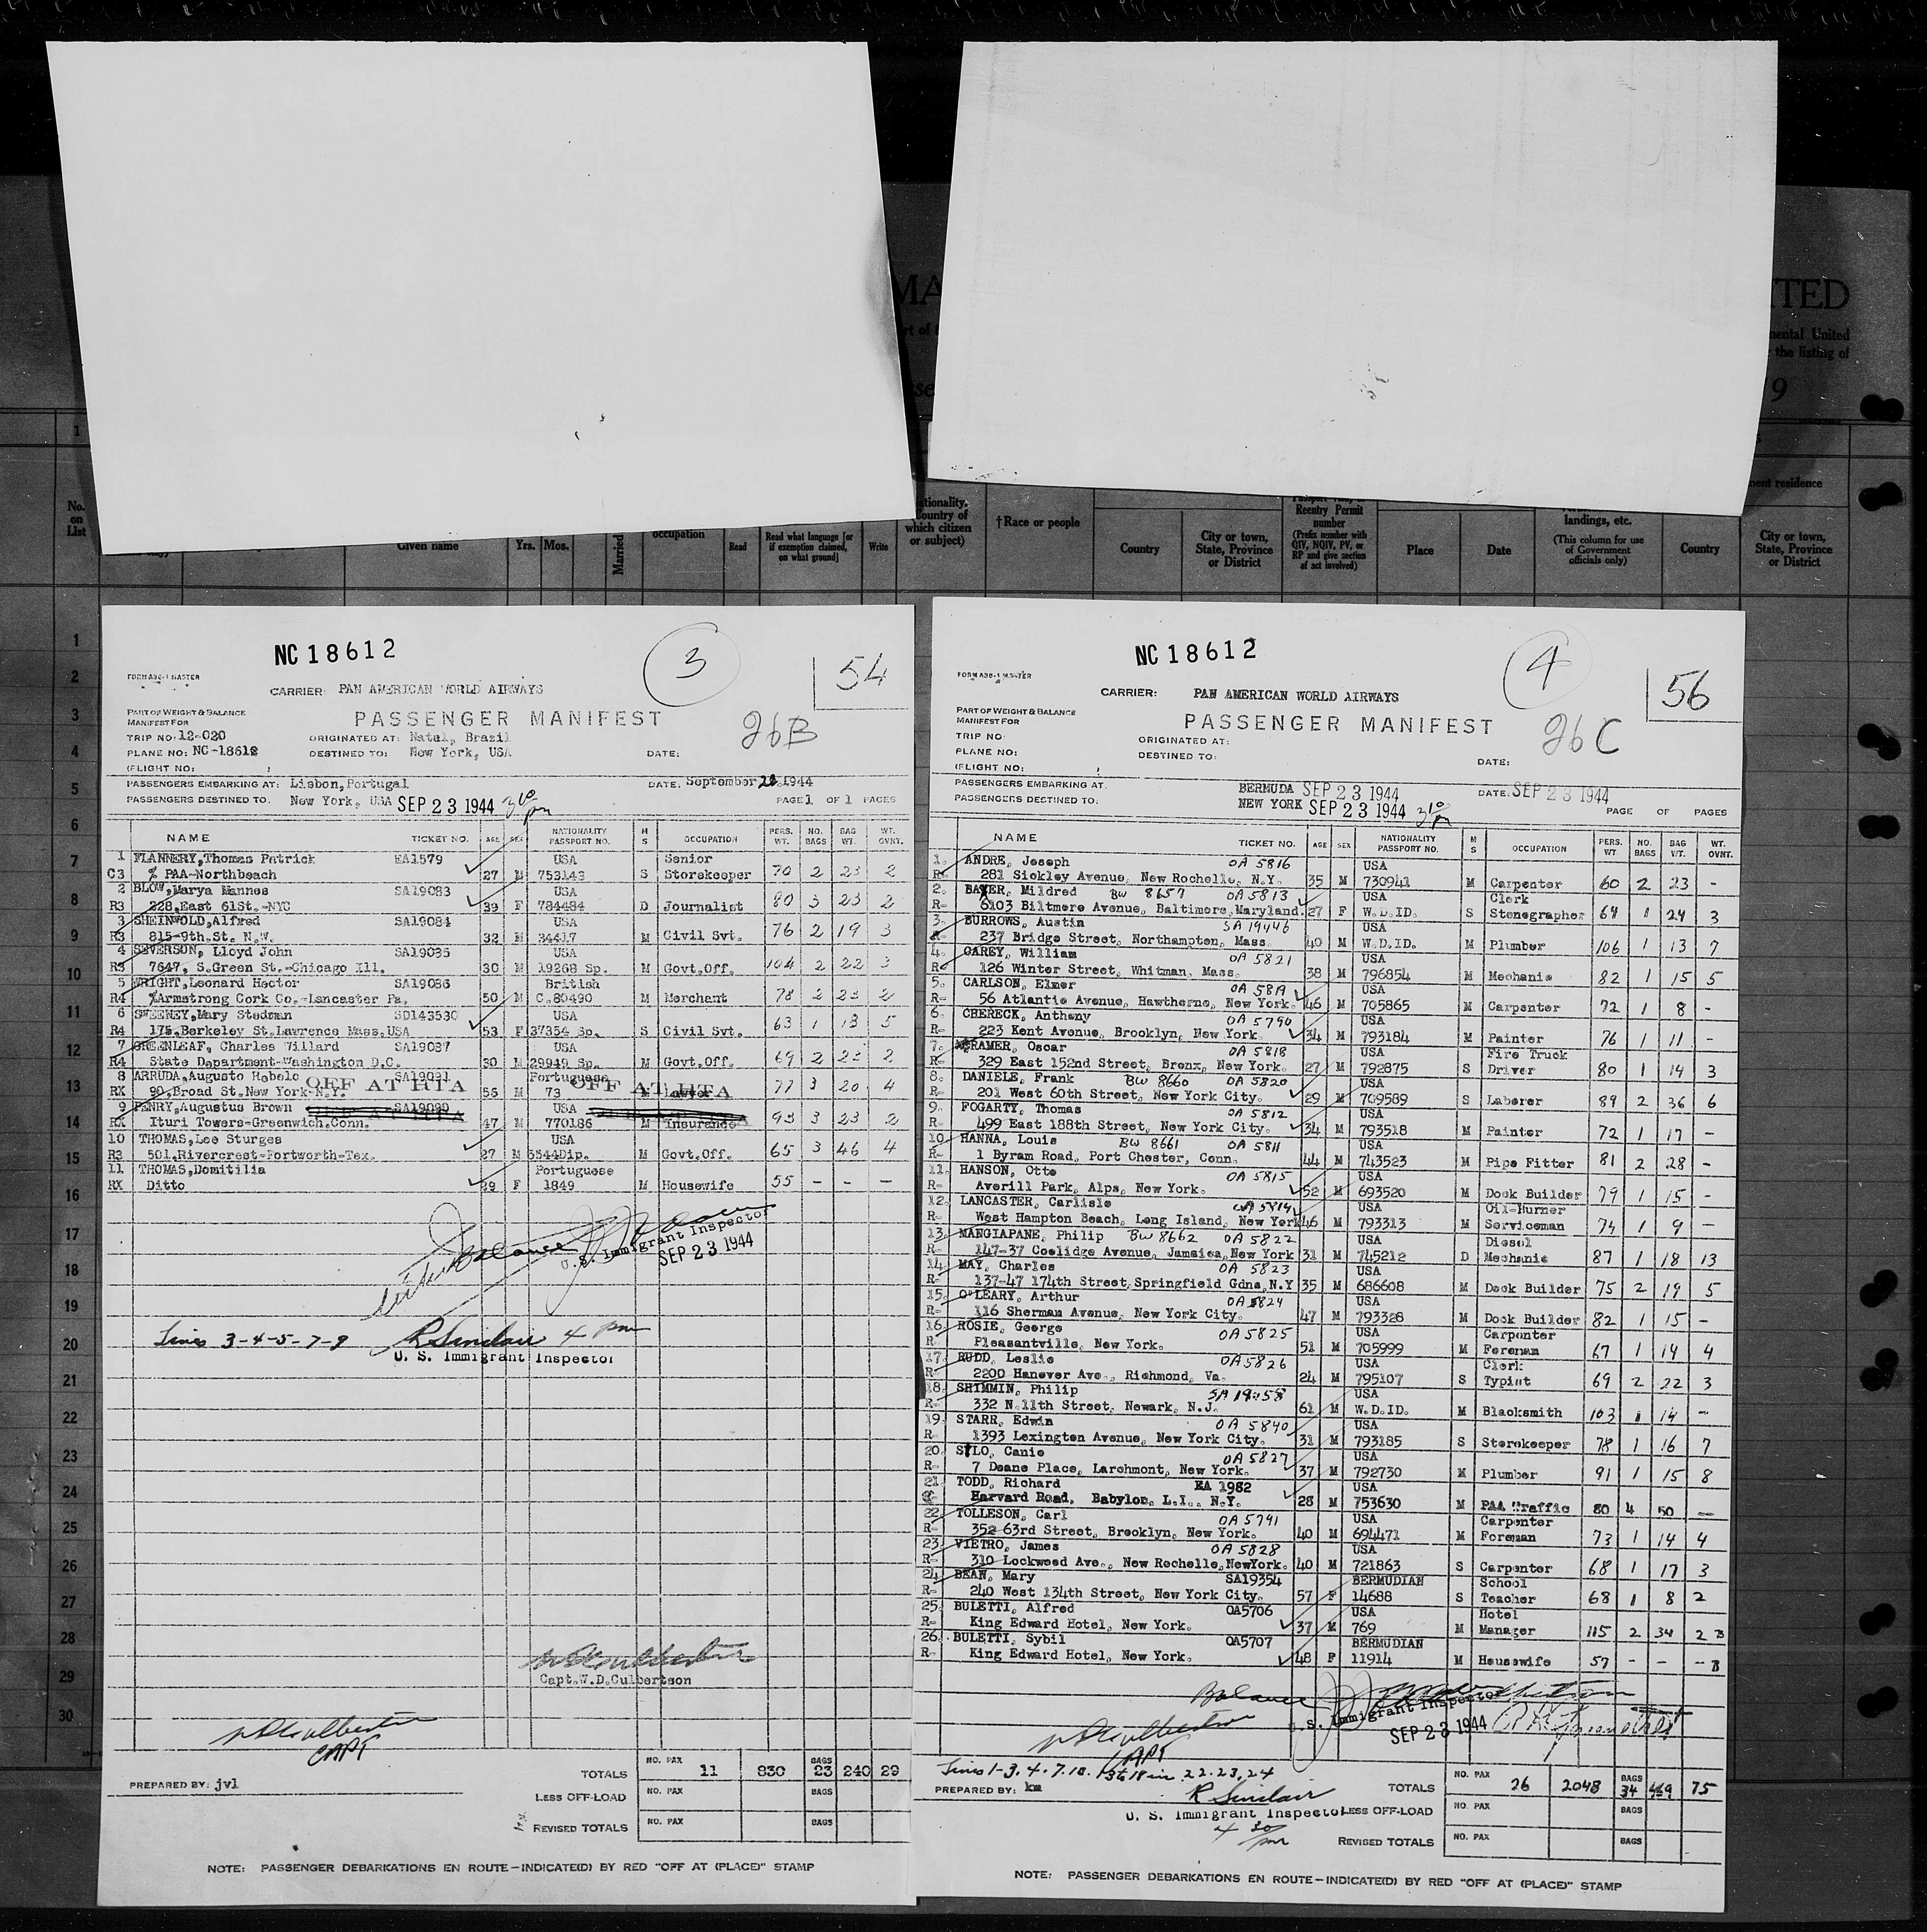 MA
TED
rt of t
nental United
the listing of
9
1
No.
on
List
Given name
Yrs.
Mos.
Married
occupation
Read
Read what language [or
if exemption claimed,
on what ground]
Write
which citizen
or subject)
†Race or people
Country
City or town,
State, Province
or District
Reentry Permit
number
(Prefix number with
QIV, NQIV, PV, or
RP and give section
of act involved)
Place
Date
landings, etc.
(This column for use
of Government
officials only)
Country
City or town,
State, Province
or District
nent residence
1
2
3
4
5
6
7
8
9
10
11
12
13
14
15
16
17
18
19
20
21
22
23
24
25
26
27
28
29
30
NC 18612
3
54
FORM A30-1 MASTER
CARRIER: PAN AMERICAN WORLD AIRWAYS
PART OF WEIGHT & BALANCE
MANIFEST FOR
PASSENGER MANIFEST
26B
TRIP NO: 12-020
ORIGINATED AT: Natal, Brazil
PLANE NO: NC-18612
DESTINED TO: New York, USA
DATE:
(FLIGHT NO: )
PASSENGERS EMBARKING AT: Lisbon, Portugal
DATE: September 1944
PASSENGERS DESTINED TO: New York, USA SEP 23 1944 3 10 pm
PAGE 1 OF 1 PAGES
NAME TICKET NO. AGE SEX NATIONALITY PASSPORT NO. M S OCCUPATION PERS. WT. NO. BAGS BAG WT. WT. OVNT.
1 FLANNERY, Thomas Patrick EA1579 USA Senior
C3 % PAA-Northbeach 27 M 753143 S Storekeeper 70 2 23 2
2 BLOW, Marya Mannes SA19083 USA
R3 228, East 61St.-NYC 39 F 784484 D Journalist 80 3 23 2
3 SHEINWOLD, Alfred SA19084 USA
R3 815-9th.St. N.W. 32 M 34417 M Civil Svt. 76 2 19 3
4 SEVERSON, Lloyd John SA19085 USA
R3 7647, S.Green St.-Chicago Ill. 30 M 19268 Sp. M Govt.Off. 104 2 22 3
5 WRIGHT, Leonard Hector SA19086 British
R4 %Armstrong Cork Co.-Lancaster Pa. 50 M C.80490 M Merchant 78 2 23 2
6 SWEENEY, Mary Stedman SD143530 USA
R4 175, Berkeley St.Lawrence Mass.USA 53 F 37354 Sp. S Civil Svt. 63 1 13 5
7 GREENLEAF, Charles Willard SA19087 USA
R4 State Department-Washington D.C. 30 M 29949 Sp. M Govt.Off. 69 2 23 2
8 ARRUDA, Augusto Rebelo SA19091 OFF AT HTA Portuguese OFF AT HTA
RX 90, Broad St.New York-N.Y. 56 M 73 M Lawyer 77 3 20 4
9 PENRY, Augustus Brown SA19090 USA
RX Ituri Towers-Greenwich.Conn. 47 M 770186 M Insurance 93 3 23 2
10 THOMAS, Lee Sturges USA
R3 501, Rivercrest-Fortworth-Tex. 27 M 5544Dip. M Govt.Off. 65 3 46 4
11 THOMAS, Domitilia Portuguese
RX Ditto 39 F 1849 M Housewife 55 - - -
Balance
U. S. Immigrant Inspector
SEP 23 1944
Lines 3-4-5-7-9 R Sinclair 4 pm
U. S. Immigrant Inspector
Capt. W.D. Culbertson
WD Culbertson
CAPT
TOTALS NO. PAX 11 830 BAGS 23 240 29
PREPARED BY: jvl
LESS OFF-LOAD NO. PAX BAGS
REVISED TOTALS NO. PAX BAGS
NOTE: PASSENGER DEBARKATIONS EN ROUTE-INDICATE(D) BY RED "OFF AT (PLACE)" STAMP
NC 18612
4
56
FORM A30-1 MASTER
CARRIER: PAN AMERICAN WORLD AIRWAYS
PART OF WEIGHT & BALANCE
MANIFEST FOR
PASSENGER MANIFEST
26C
TRIP NO:
ORIGINATED AT:
PLANE NO:
DESTINED TO:
DATE:
(FLIGHT NO: )
PASSENGERS EMBARKING AT: BERMUDA SEP 23 1944
DATE: SEP 23 1944
PASSENGERS DESTINED TO: NEW YORK SEP 23 1944 3 10 pm
PAGE OF PAGES
NAME TICKET NO. AGE SEX NATIONALITY PASSPORT NO. M S OCCUPATION PERS. WT. NO. BAGS BAG WT. WT. OVNT.
1. ANDRE, Joseph OA 5816 USA
R- 281 Sickley Avenue, New Rochelle, N.Y. 35 M 730941 M Carpenter 60 2 23 -
2. BAYER, Mildred BW 8657 OA 5813 USA Clerk
R- 6103 Biltmore Avenue, Baltimore, Maryland. 27 F W.D.ID. S Stenographer 64 1 24 3
3. BURROWS, Austin SA 19446 USA
R- 237 Bridge Street, Northampton, Mass. 40 M W.D.ID. M Plumber 106 1 13 7
4. CAREY, William OA 5821 USA
R- 126 Winter Street, Whitman, Mass. 38 M 796854 M Mechanic 82 1 15 5
5. CARLSON, Elmer OA 5819 USA
R- 56 Atlantic Avenue, Hawthorne, New York. 46 M 705865 M Carpenter 72 1 8 -
6. CHERECK, Anthony OA 5790 USA
R- 223 Kent Avenue, Brooklyn, New York. 34 M 793184 M Painter 76 1 11 -
7. KRAMER, Oscar OA 5818 USA Fire Truck
R- 329 East 152nd Street, Bronx, New York. 27 M 792875 S Driver 80 1 14 3
8. DANIELE, Frank BW 8660 OA 5820 USA
R- 201 West 60th Street, New York City. 29 M 709589 S Laborer 89 2 36 6
9. FOGARTY, Thomas OA 5812 USA
R- 499 East 188th Street, New York City. 34 M 793518 M Painter 72 1 17 -
10. HANNA, Louis BW 8661 OA 5811 USA
R- 1 Byram Road, Port Chester, Conn. 44 M 743523 M Pipe Fitter 81 2 28 -
11. HANSON, Otto OA 5815 USA
R- Averill Park, Alps, New York. 52 M 693520 M Dock Builder 79 1 15 -
12. LANCASTER, Carlisle OA 5814 USA Oil-Burner
R- West Hampton Beach, Long Island, New York 46 M 793313 M Serviceman 74 1 9 -
13. MANGIAPANE, Philip BW 8662 OA 5822 USA Diesel
R- 147-37 Coolidge Avenue, Jamaica, New York 31 M 745212 D Mechanic 87 1 18 13
14. MAY, Charles OA 5823 USA
R- 137-47 174th Street, Springfield Gdns, N.Y 35 M 686608 M Dock Builder 75 2 19 5
15. O'LEARY, Arthur OA 5824 USA
R- 116 Sherman Avenue, New York City. 47 M 793328 M Dock Builder 82 1 15 -
16. ROSIE, George OA 5825 USA Carpenter
R- Pleasantville, New York. 51 M 705999 M Foreman 67 1 14 4
17. RUDD, Leslie OA 5826 USA Clerk
R- 2200 Hanover Ave., Richmond, Va. 24 M 795107 S Typist 69 2 22 3
18. SHIMMIN, Philip SA USA
R- 332 N.11th Street, Newark, N.J. 61 M W.D.ID. M Blacksmith 103 1 14 -
19. STARR, Edwin OA 5840 USA
R- 1393 Lexington Avenue, New York City. 31 M 793185 S Storekeeper 78 1 16 7
20. SILO, Canio OA 5827 USA
R- 7 Deane Place, Larchmont, New York. 37 M 792730 M Plumber 91 1 15 8
21. TODD, Richard EA 1982 USA
Harvard Road, Babylon, L.I., N.Y. 28 M 753630 M PAA Traffic 80 4 50 -
22. TOLLESON, Carl OA 5791 USA Carpenter
R- 352 63rd Street, Brooklyn, New York. 40 M 694471 M Foreman 73 1 14 4
23. VIETRO, James OA 5828 USA
R- 310 Lockwood Ave., New Rochelle, NewYork. 40 M 721863 S Carpenter 68 1 17 3
24. BEAN, Mary SA19354 BERMUDIAN School
R- 240 West 134th Street, New York City. 57 F 14688 S Teacher 68 1 8 2
25. BULETTI, Alfred OA5706 USA Hotel
R- King Edward Hotel, New York. 37 M 769 M Manager 115 2 34 2
26. BULETTI, Sybil OA5707 BERMUDIAN
R- King Edward Hotel, New York. 48 F 11914 M Housewife 57 - - -
Balance
U. S. Immigrant Inspector
SEP 23 1944
WD Culbertson
CAPT
Lines 1-3.4.7.10. 22.23.24
PREPARED BY: km
R Sinclair
U. S. Immigrant Inspector
4 30 pm
TOTALS NO. PAX 26 2048 BAGS 34 469 75
LESS OFF-LOAD NO. PAX BAGS
REVISED TOTALS NO. PAX BAGS
NOTE: PASSENGER DEBARKATIONS EN ROUTE-INDICATE(D) BY RED "OFF AT (PLACE)" STAMP